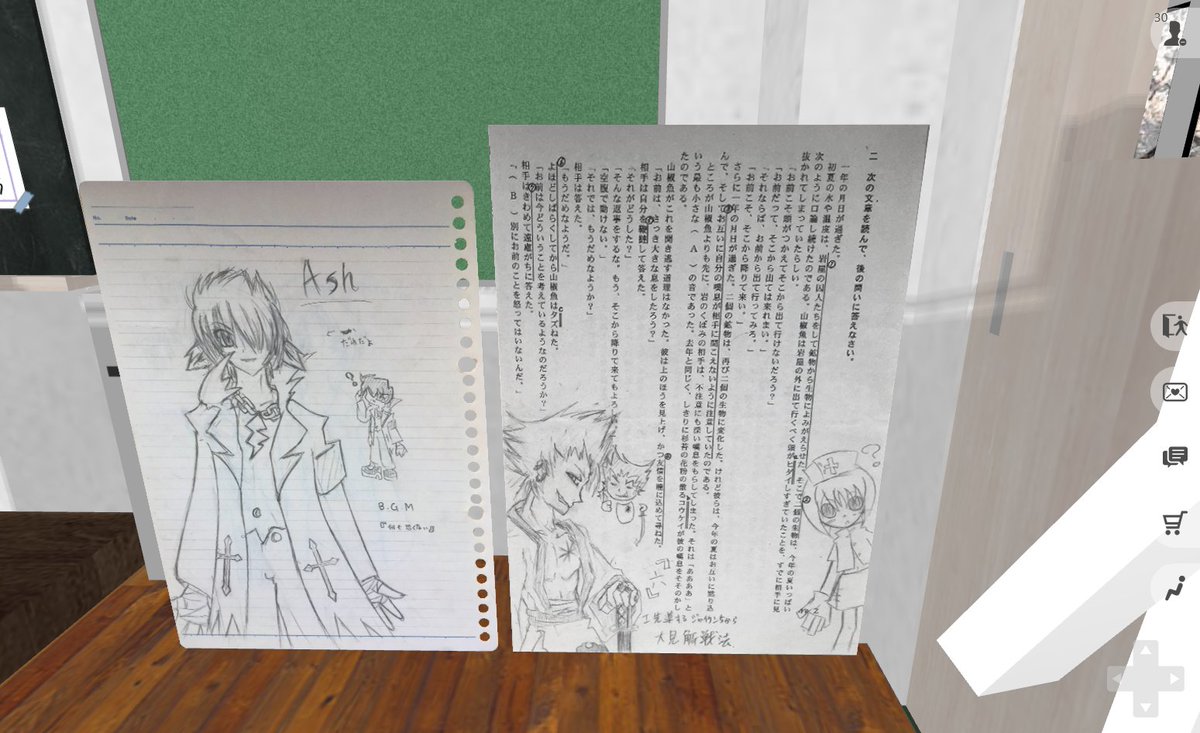 30
No.
Date
Ash
だめだよ
?
B.G.M
二 次の文章を読んで、後の問いに答えなさい。
一年の月日が過ぎた。
初夏の水や温度は、岩屋の囚人たちをして鉱物から生物によみがえらせた。そこで二個の生物は、今年の夏いっぱい
次のように口論し続けたのである。山椒魚は岩屋の外に出て行くべく頭がヒダイしすぎていたことを、すでに相手に見
抜かれてしまっていたらしい。
「お前こそ頭がつかえてそこから出て行けないだろう?」
「お前だって、そこから出ては来れまい。」
「それならば、お前から出て行ってみろ。」
「お前こそ、そこから降りて来い。」
さらに一年の月日が過ぎた。二個の鉱物は、再び二個の生物に変化した。けれど彼らは、今年の夏はお互いに黙り込
んで、そしてお互いに自分の嘆息が相手に聞こえないように注意していたのである。
ところが山椒魚よりも先に、岩のくぼみの相手は、不注意にも深い嘆息をもらしてしまった。それは「ああああ」と
いう最も小さな( A )の音であった。去年と同じく、しきりに杉苔の花粉の散るコウケイが彼の嘆息をそそのかし
たのである。
山椒魚がこれを聞き逃す道理はなかった。彼は上のほうを見上げ、かつ友情を瞳に込めて尋ねた。
「お前は、さっき大きな息をしたろう?」
相手は自分を鞭撻して答えた。
「それがどうした?」
「そんな返事をするな。もう、そこから降りて来てもよろし
「空腹で動けない。」
「それでは、もうだめなようか?」
相手は答えた。
「もうだめなようだ。」
よほどしばらくしてから山椒魚はタズねた。
「お前は今どういうことを考えているようなのだろうか?」
相手はきわめて遠慮がちに答えた。
「( B )別にお前のことを怒ってはいないんだ。」
??
『六』